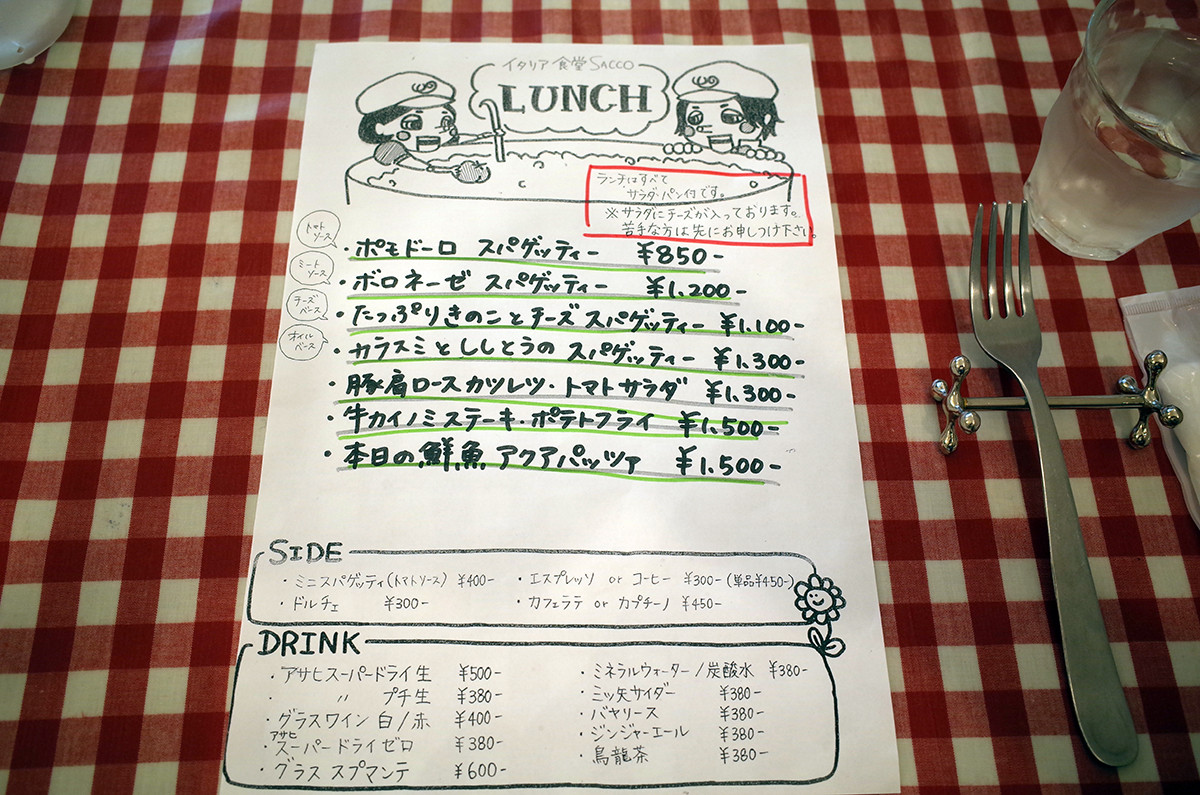 イタリア食堂SACCO
LUNCH
ランチはすべて
サラダ・パン付です。
※サラダにチーズが入っております。
苦手な方は先にお申しつけ下さい。
トマトソース
・ポモドーロ スパゲッティー ¥850-
ミートソース
・ボロネーゼ スパゲッティー ¥1,200-
チーズベース
・たっぷりきのことチーズ スパゲッティー ¥1,100-
オイルベース
・カラスミとししとうの スパゲッティー ¥1,300-
・豚肩ロースカツレツ・トマトサラダ ¥1,300-
・牛カイノミステーキ・ポテトフライ ¥1,500-
・本日の鮮魚 アクアパッツァ ¥1,500-
SIDE
・ミニスパゲッティ(トマトソース) ¥400- ・エスプレッソ or コーヒー ¥300-(単品¥450-)
・ドルチェ ¥300- ・カフェラテ or カプチーノ ¥450-
DRINK
・アサヒスーパードライ生 ¥500-
・ 〃 プチ生 ¥380-
・グラスワイン 白/赤 ¥400-
・アサヒスーパードライゼロ ¥380-
・グラス スプマンテ ¥600-
・ミネラルウォーター/炭酸水 ¥380-
・三ッ矢サイダー ¥380-
・バヤリース ¥380-
・ジンジャーエール ¥380-
・烏龍茶 ¥380-